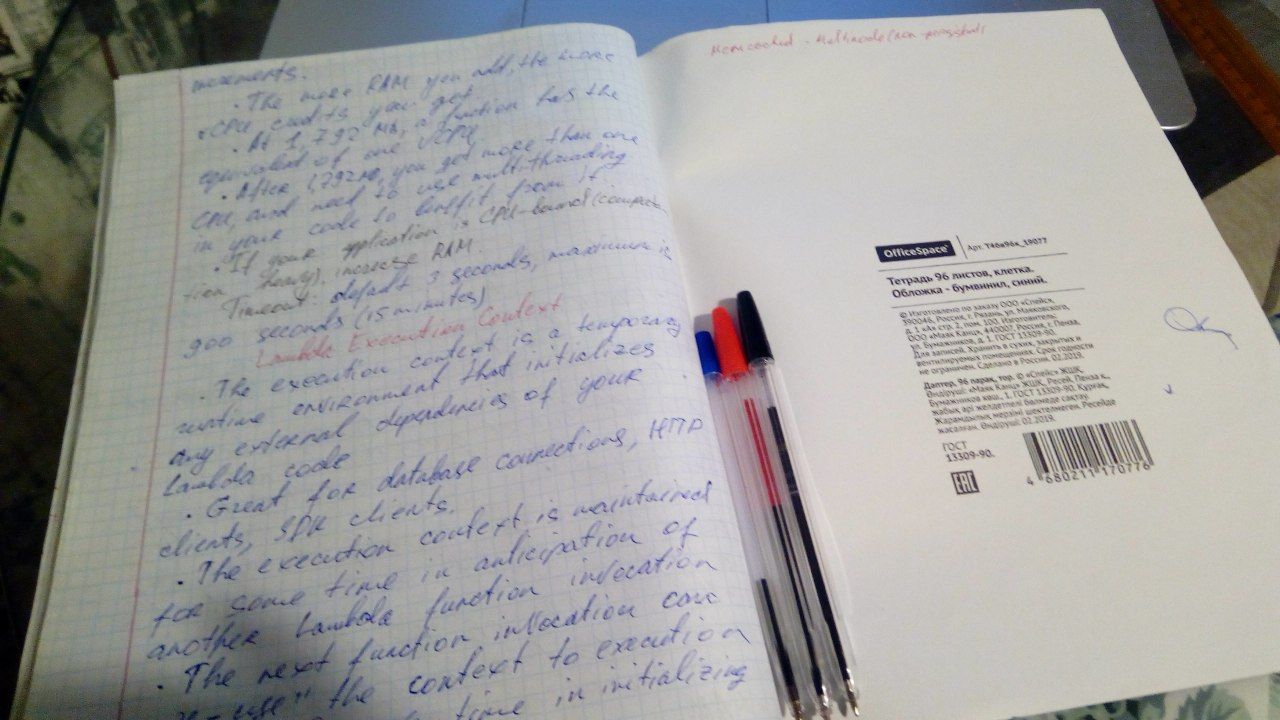 increments.
• The more RAM you add, the more
vCPU credits you get.
• At 1,792 Mb, a function has the
equivalent of one vCPU
• After 1,792 Mb, you get more than one
CPU, and need to use multithreading
in your code to benefit from it
• If your application is CPU-bound (computa-
tion heavy), increase RAM.
Timeout: default 3 seconds, maximum is
900 seconds (15 minutes)
Lambda Execution Context
• The execution context is a temporary
runtime environment that initializes
any external dependencies of your
lambda code
• Great for database connections, HTTP
clients, SDK clients.
• The execution context is maintained
for some time in anticipation of
another Lambda function invocation
• The next function invocation can
"re-use" the context to execution
time in initializing
OfficeSpace Арт. Т46в96к_19077
Тетрадь 96 листов, клетка.
Обложка - бумвинил, синий.
© Изготовлено по заказу ООО «Спейс»,
390046, Россия, г. Рязань, ул. Маяковского,
д. 1 «А» стр. 2, пом. 100. Изготовитель:
ООО «Маяк Канц», 440007, Россия, г. Пенза,
ул. Бумажников, д. 1. ГОСТ 13309-90.
Для записей. Хранить в сухих, закрытых и
вентилируемых помещениях. Срок годности
не ограничен. Сделано в России. 02.2019.
Дәптер, 96 парақ, тор. © «Спейс» ЖШҚ,
Өндіруші: «Маяк Канц» ЖШҚ, Ресей, Пенза қ.,
Бумажников көш., 1. ГОСТ 13309-90. Құрғақ,
жабық әрі желдетілгі бөлмеде сақтау.
Жарамдылық мерзімі шектелмеген. Ресейде
жасалған. Өндіруші 02.2019.
ГОСТ
13309-90.
EAC
4 680211 170776